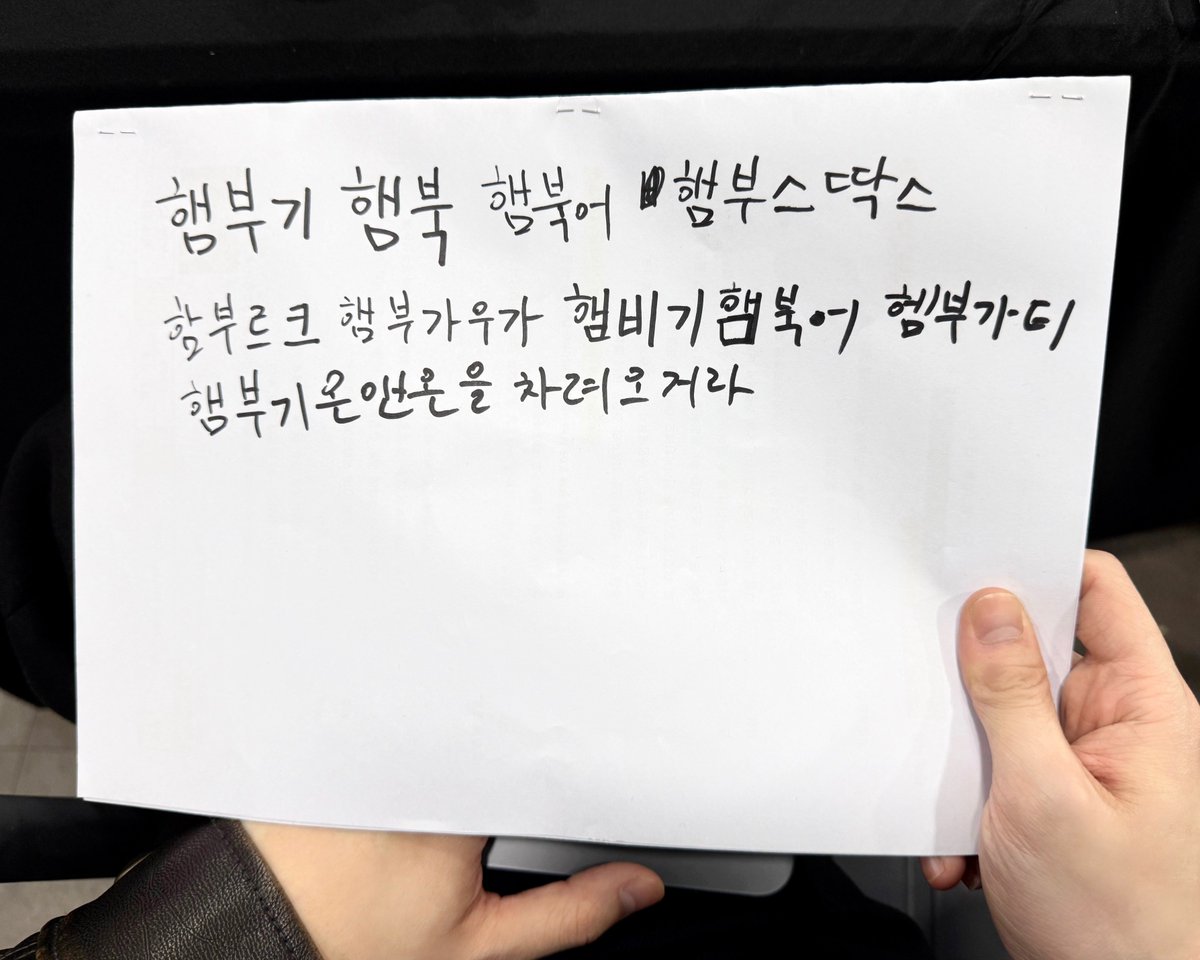 햄부기 햄북 햄북어 햄부스딱스
함부르크 햄부가우가 햄비기햄북어 헴부가티
햄부기온앤온을 차려오거라